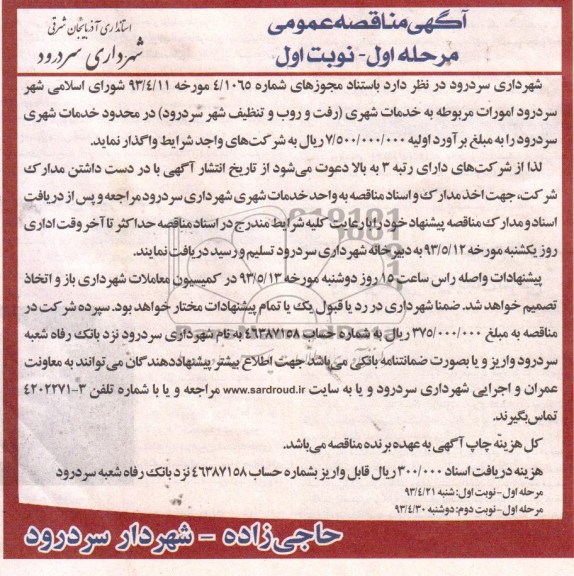 آگهی مناقصه عمومی
مرحله اول- نوبت اول
استانداری آذربایجان شرقی
شهرداری سردرود
شهرداری سردرود در نظر دارد باستناد مجوزهای شماره ۴/۱۰۶۵ مورخه ۹۳/۴/۱۱ شورای اسلامی شهر
سردرود امورات مربوطه به خدمات شهری (رفت و روب و تنظیف شهر سردرود) در محدود خدمات شهری
سردرود را به مبلغ برآورد اولیه ۷/۵۰۰/۰۰۰/۰۰۰ ریال به شرکت‌های واجد شرایط واگذار نماید.
لذا از شرکت‌های دارای رتبه ۳ به بالا دعوت می‌شود از تاریخ انتشار آگهی با در دست داشتن مدارک
شرکت، جهت اخذ مدارک و اسناد مناقصه به واحد خدمات شهری شهرداری سردرود مراجعه و پس از دریافت
اسناد و مدارک مناقصه پیشنهاد خود را با رعایت کلیه شرایط مندرج در اسناد مناقصه حداکثر تا آخر وقت اداری
روز یکشنبه مورخه ۹۳/۵/۱۲ به دبیرخانه شهرداری سردرود تسلیم و رسید دریافت نمایند.
پیشنهادات واصله راس ساعت ۱۵ روز دوشنبه مورخه ۹۳/۵/۱۳ در کمیسیون معاملات شهرداری باز و اتخاذ
تصمیم خواهد شد. ضمنا شهرداری در رد یا قبول یک یا تمام پیشنهادات مختار خواهد بود. سپرده شرکت در
مناقصه به مبلغ ۳۷۵/۰۰۰/۰۰۰ ریال به شماره حساب ۴۶۳۸۷۱۵۸ به نام شهرداری سردرود نزد بانک رفاه شعبه
سردرود واریز و یا بصورت ضمانتنامه بانکی می‌باشد جهت اطلاع بیشتر پیشنهاددهندگان می‌توانند به معاونت
عمران و اجرایی شهرداری سردرود و یا به سایت www.sardroud.ir مراجعه و یا با شماره تلفن ۳-۴۲۰۲۲۷۱
تماس بگیرند.
کل هزینه چاپ آگهی به عهده برنده مناقصه می‌باشد.
هزینه دریافت اسناد ۳۰۰/۰۰۰ ریال قابل واریز بشماره حساب ۴۶۳۸۷۱۵۸ نزد بانک رفاه شعبه سردرود
مرحله اول-نوبت اول: شنبه ۹۳/۴/۲۱
مرحله اول-نوبت دوم: دوشنبه ۹۳/۴/۳۰
حاجی‌زاده - شهردار سردرود